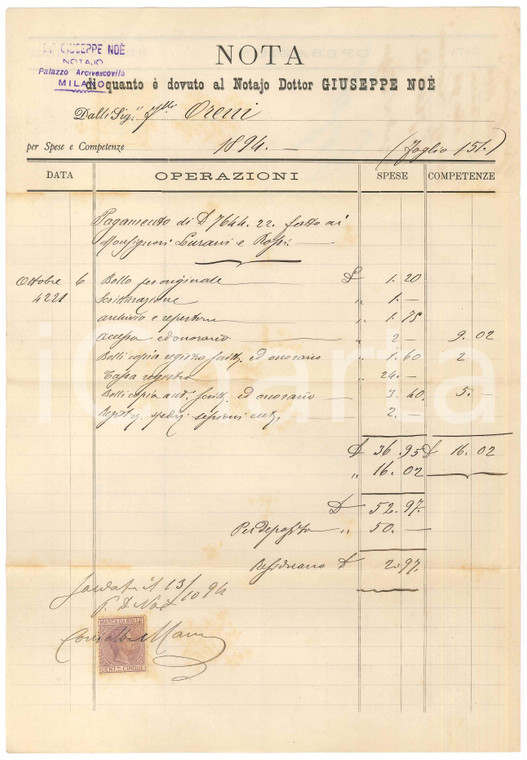 Dr GIUSEPPE NOÈ
NOTAJO
Palazzo Arcivescovile
MILANO
NOTA
di quanto è dovuto al Notajo Dottor GIUSEPPE NOÈ
Dalli Sig.ri F.lli Oreni
per Spese e Competenze 1894. — (foglio 151.)
DATA OPERAZIONI SPESE COMPETENZE
Pagamento di £ 7644. 22. fatto ai
Monsignori Lurani e Rossi —
Ottobre 6 Bollo per originale £ 1. 20
4221 Scritturazione " 1. —
archivio e repertorio " 1. 75
accesso ed onorario " 2 — 9. 02
Bolli copia registro scritt. ed onorario " 1. 60 2
Tassa registro " 24. —
Bolli copia aut. scritt. ed onorario " 3. 40. 5. —
2. —
£ 36. 95 £ 16. 02
" 16. 02
£ 52. 97.
Per deposito " 50. —
Residuano £ 2. 97.
Saldato il 13/10 94
p. D. Noè
MARCA DA BOLLO
CENT.MI CINQUE
Carta